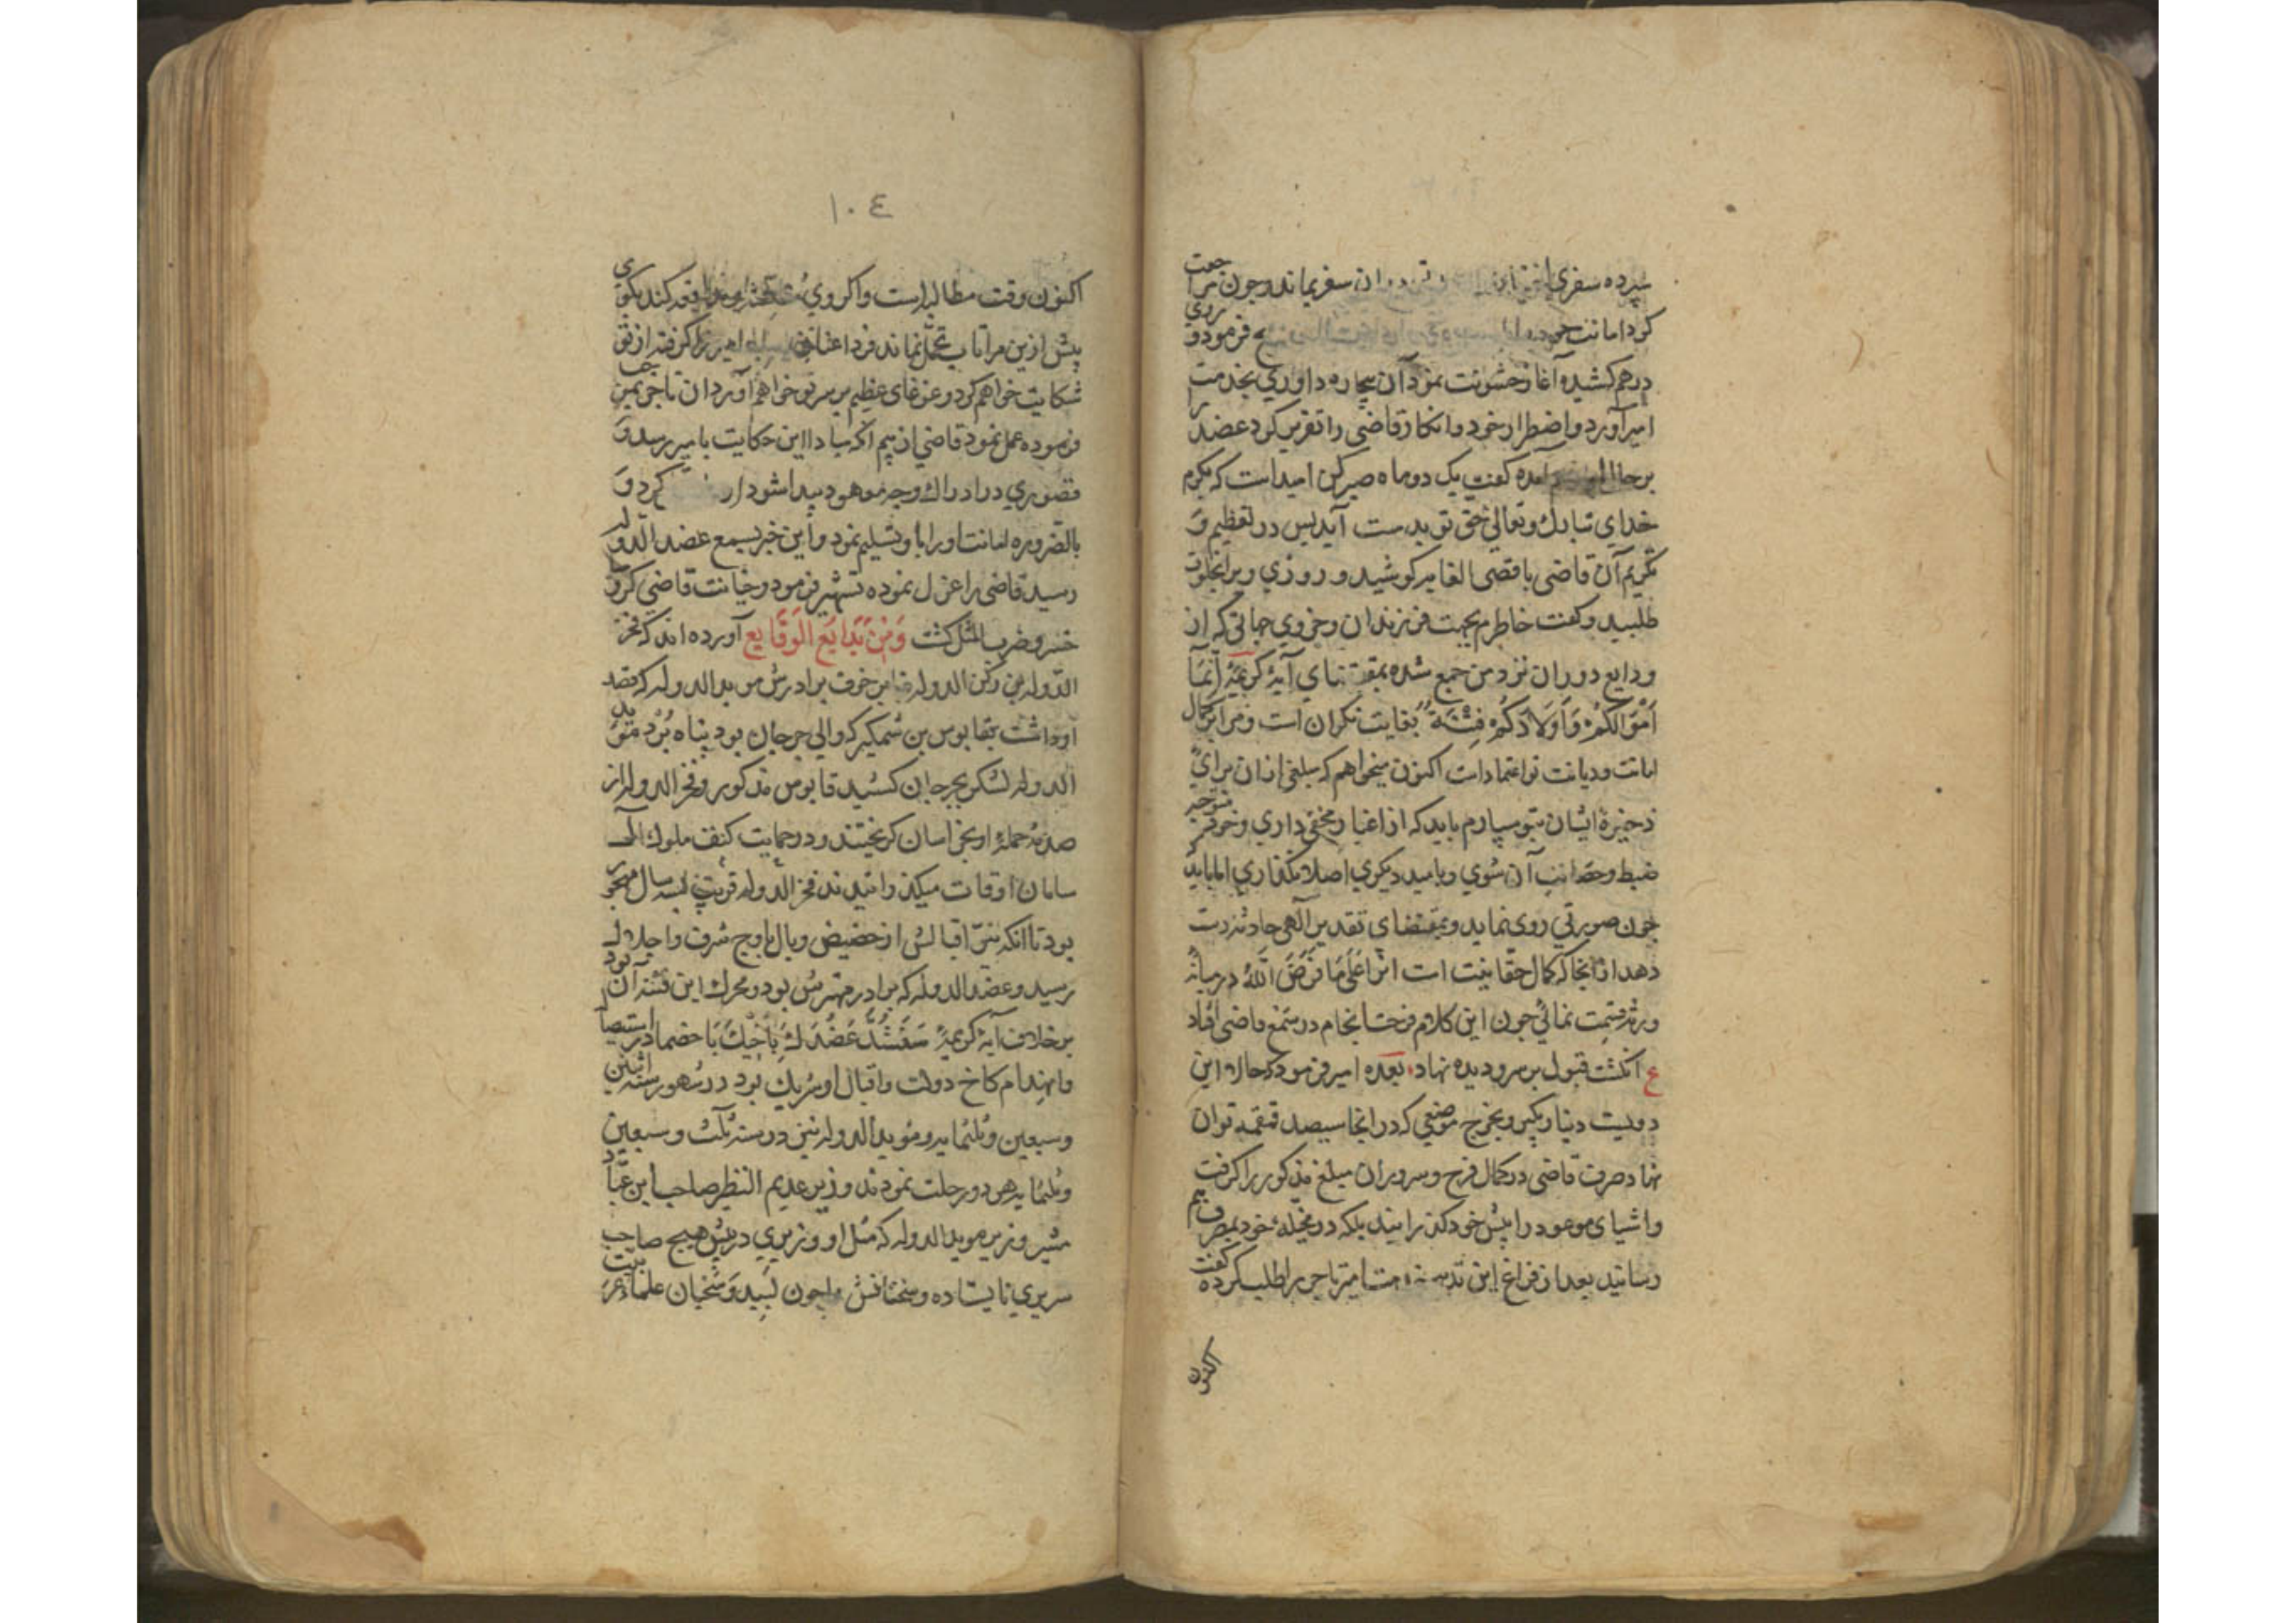 سپرده سفری سفر بماند و چون مراجعت
کرد امانت خود فرمود و روی
درهم کشیده آغاز خشونت نمود آن بیچاره داوری بخدمت
امیر آورد و اضطرار خود و انکار قاضی را تقریر کرد عضد را
بر حال آمده گفت یک دو ماه صبر کن امید است که بکرم
خدای تبارک و تعالی حق تو بدست آید پس در تعظیم و
تکریم آن قاضی باقصی الغایه کوشید و روزی ویرا بخلوت
طلبید و گفت خاطرم بجهت فرزندان و
ودایع دوران نزد من جمع شده بمقتضای آیهٔ کریمهٔ اِنَّمَا
اَمْوَالُکُمْ وَ اَوْلَادُکُمْ فِتْنَةٌ بغایت نگران است و مرا بر کمال
امانت و دیانت تو اعتماد است اکنون میخواهم که مبلغی ازان برای
ذخیرهٔ ایشان بتو سپارم باید که از اغیار مخفی داری و خود متوجه
ضبط و آن شوی و بامید دیگری اصلا نگذاری اما باید
چون صورتی روی نماید و بمقتضای تقدیر الهی حادثه دست
دهد از انجا که کمال حقانیت است اثرا عَلَی مَا فَرَضَ اللّٰهُ در میانهٔ
ورثه قسمت نمائی چون این کلام فرخنده انجام در سمع قاضی افتاد
ع انگشت قبول بر سر و دیده نهاد بعده امیر فرمود که حالا این
دویست دینار بگیر و بخرج موضعی که در انجا سیصد قمقمه توان
نهاد صرف قاضی در کمال فرح و سرور ان مبلغ مذکور را گرفت
و اشیای موعود را پیش خود گذرانید بلکه در مخیلهٔ خود بمصرف هم
رسانید بعد از فراغ این تاجر را طلب کرده گفت
اکنون
١٠٤
اکنون وقت مطالبه است و اگر وی کند بگوی
پیش ازین مرا تاب تحمل نماند فردا عنان امیر را گرفته از تو
شکایت خواهم کرد و غوغای عظیم بر سر تو خواهم آورد ان تاجر بموجب
فرموده عمل نمود قاضی از بیم آنکه مبادا این حکایت بامیر رسد و
قصوری در ادراک وجه موهود پیدا شود کرد و
بالضروره امانت او را باو تسلیم نمود و این خبر بسمع عضد الدوله
رسید قاضی را عزل نموده تشهیر فرمود و خیانت قاضی
و ضرب المثل گشت وَمِنْ بَدَایَعِ الْوَقَایِع آورده اند که فخر
الدوله بن رکن الدوله از خوف برادرش مویدالدوله که قصد
او داشت بقابوس بن شمکیر که والی جرجان بود پناه برد موید
الدوله لشکر بجرجان کشید قابوس مذکور و فخر الدوله از
صدمهٔ حملهٔ او بخراسان گریختند و در حمایت کنف ملوک آل
سامان اوقات میگذرانیدند فخر الدوله قریب بسه سال مهجور
بود تا آنکه نیّر اقبالش از حضیض وبال باوج شرف و اجلال
رسید و عضد الدوله که برادر مهترش بود و محرک این فتنه آن بود
بر خلاف آیهٔ کریمهٔ سَنَشُدُّ عَضُدَکَ بِاَخِیكَ با خصما در استیصال
و انهدام کاخ دولت و اقبال او شریک بود در شهور سنه اثنین
و سبعین و ثلثمایه و موید الدوله نیز در سنه ثلث و سبعین
و ثلثمایه هر دو رحلت نمودند وزیر عدیم النظیر صاحب ابن عبّاد
مشیر و زیر موید الدوله که مثل او وزیری در پیش هیچ صاحب
سریری نایستاده و سخنانش چون لبید و سخبان علماء عربیت